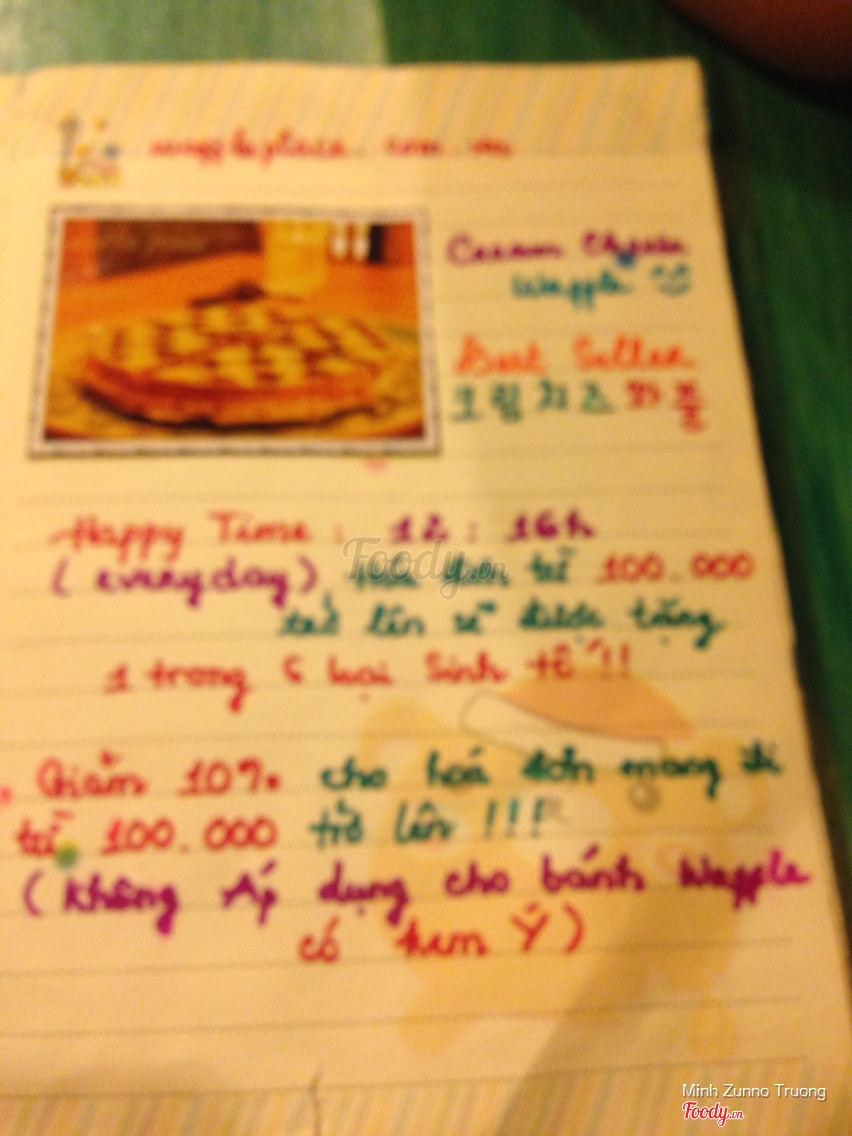 Cream Cheese
Wapple
Best Seller
크림치즈 와플
Happy Time: 12:16h
(everyday) Hóa đơn từ 100.000
trở lên sẽ được tặng
1 trong 6 loại Sinh tố!!
Giảm 10% cho hoá đơn mang đi
từ 100.000 trở lên !!!
(Không Áp dụng cho bánh Wapple
có kem Ý)
Foody.vn
Minh Zunno Truong
Foody.vn